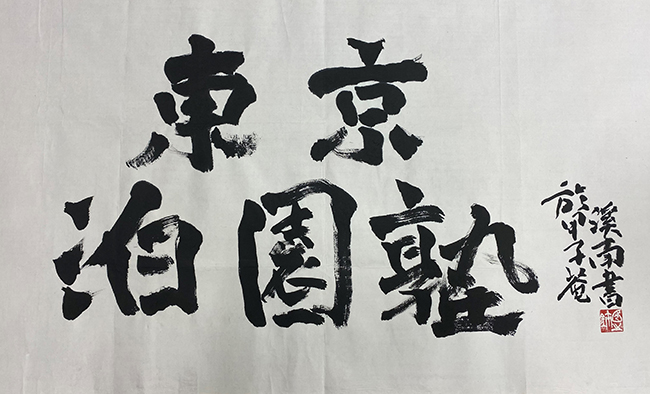 東京
泊園塾
溪南書
於甲子菴